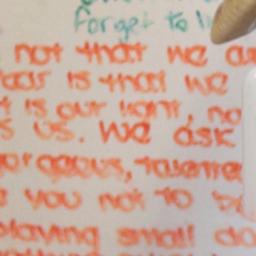 forget to li
not that we a
ear is that we
t is our light, no
s us. We ask
gorgeous, talente
e you not to b
playing small do